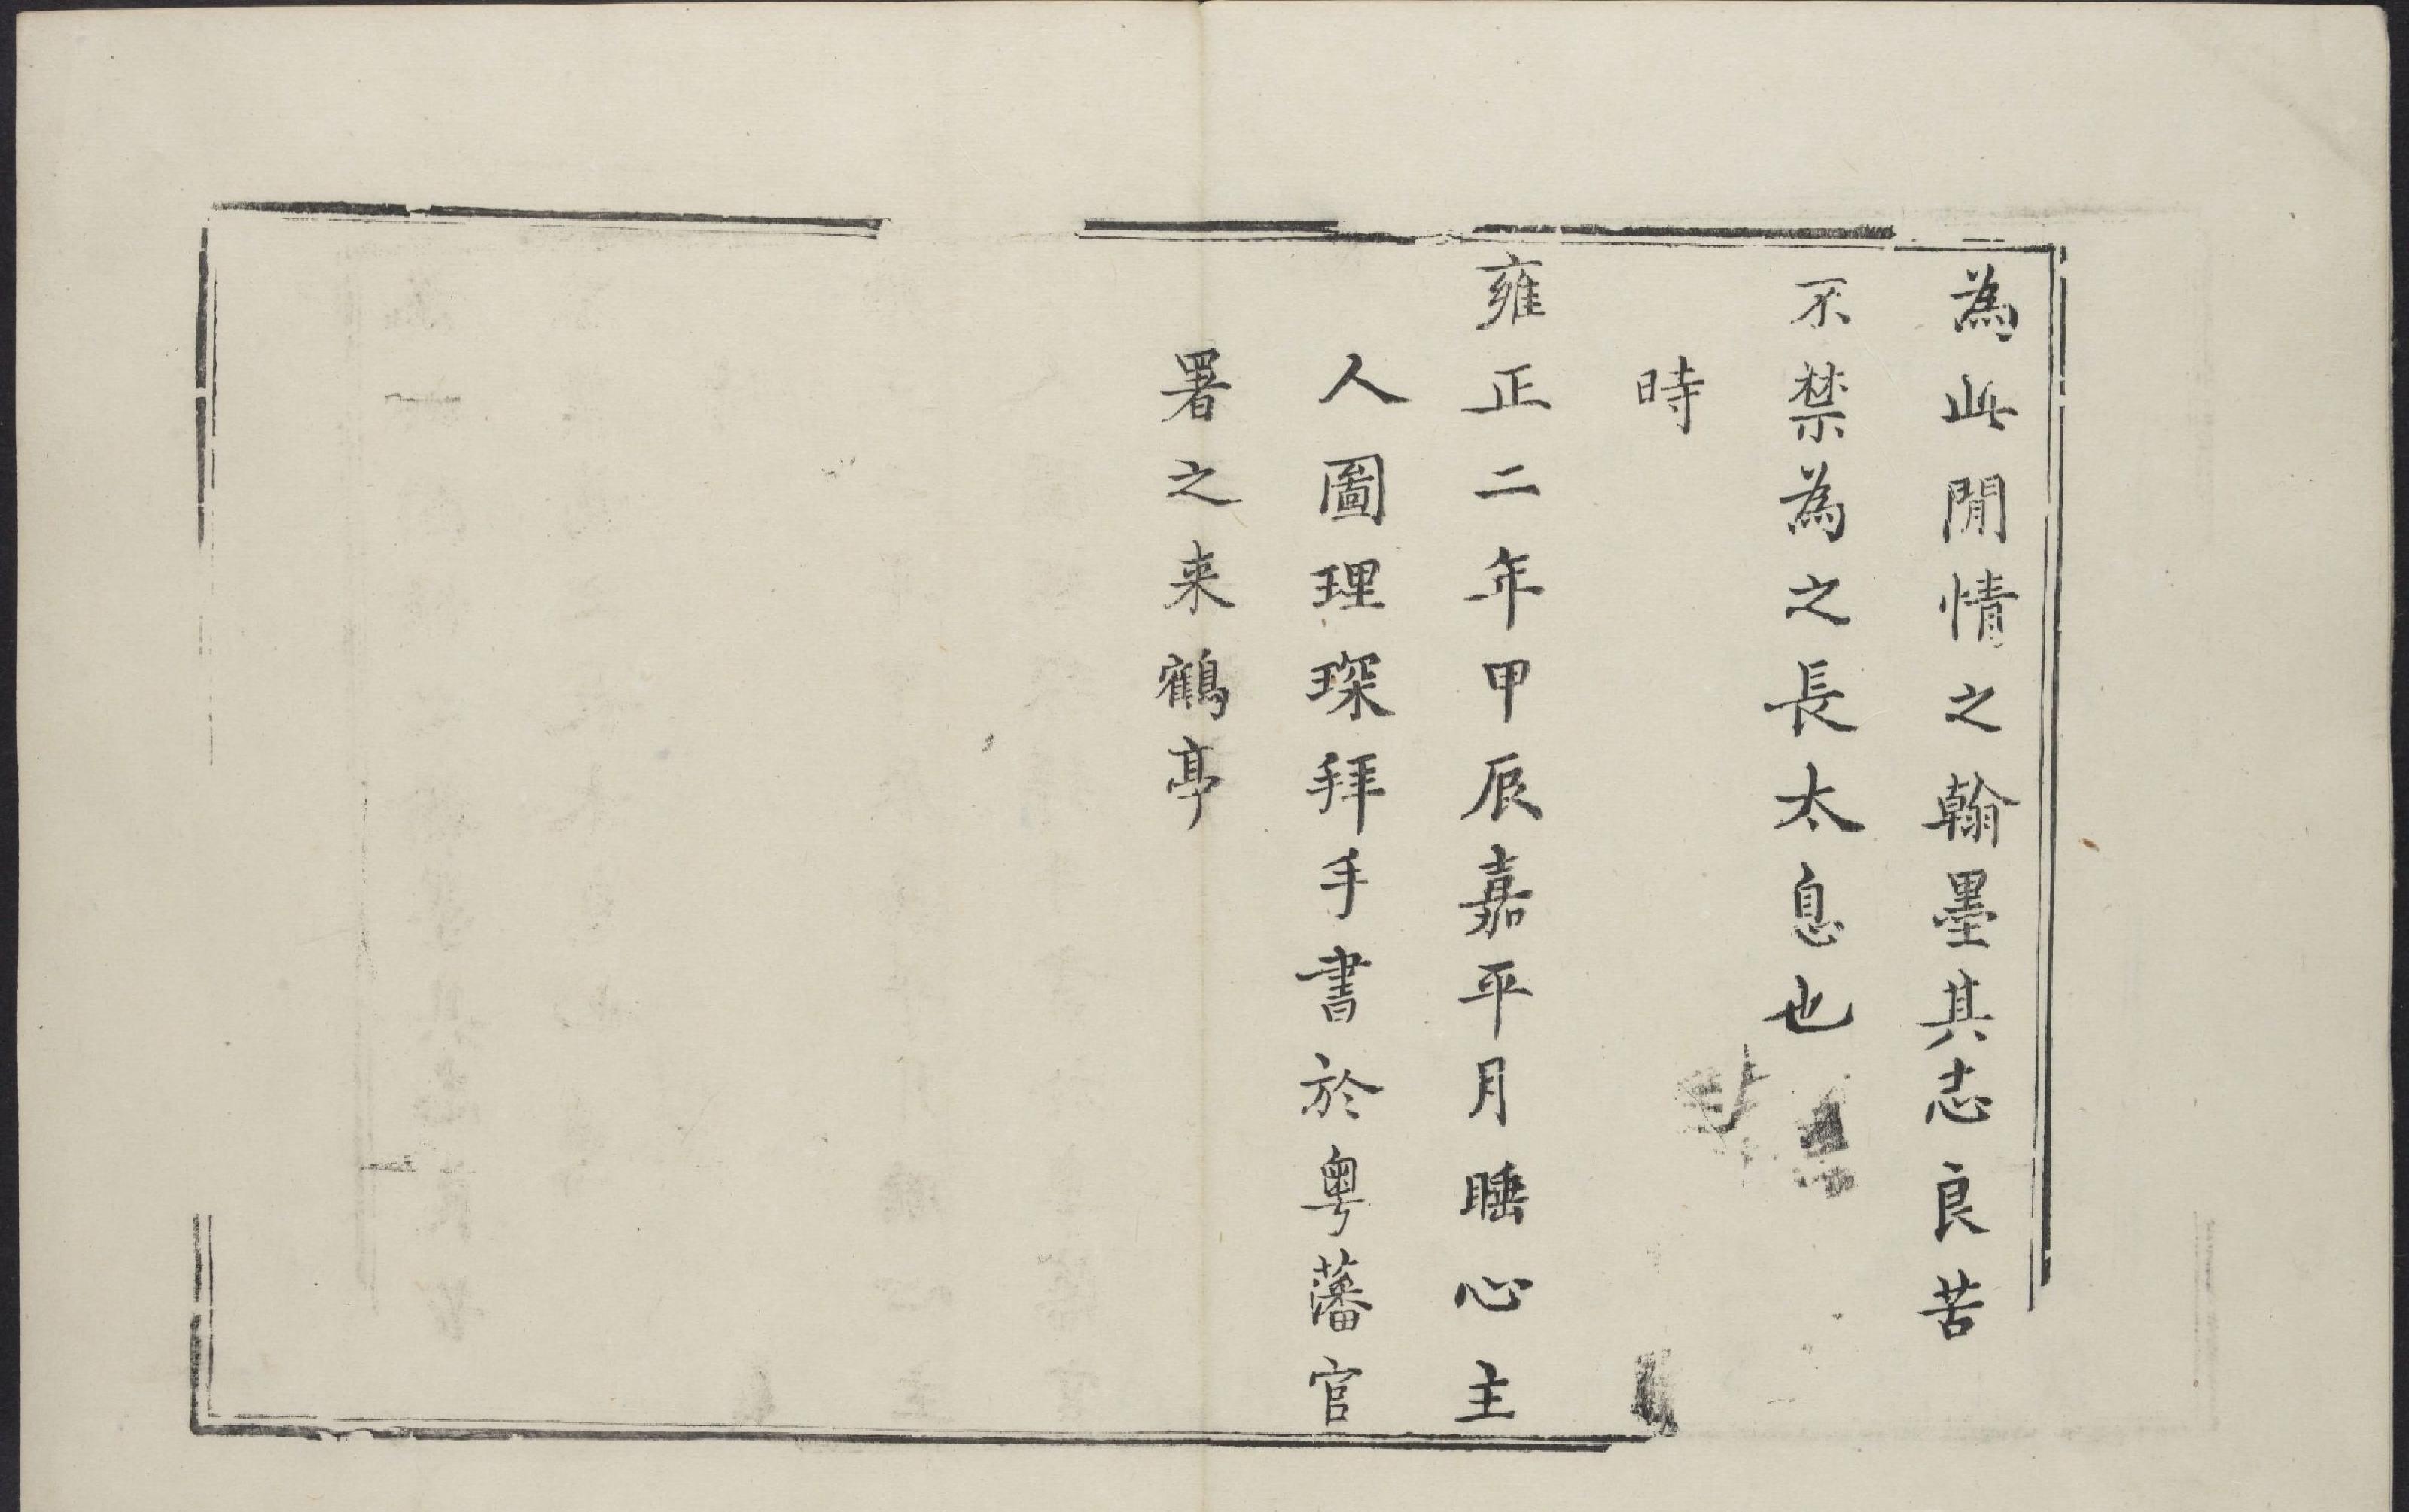 為此閒情之翰墨其志良苦
不禁為之長太息也
時
雍正二年甲辰嘉平月睡心主
人圖理琛拜手書於粵藩官
署之来鶴亭